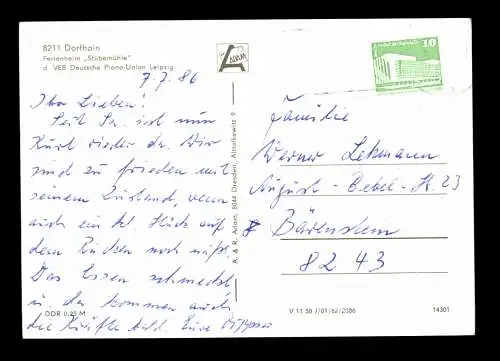 8211 Dorfhain
Ferienheim „Stübemühle"
d. VEB Deutsche Piano-Union Leipzig
7.7.86
Ihr Lieben!
Seit Sa. ist nun
Kurt wieder da. Wir
sind zufrieden mit
seinem Zustand, wenn
auch ein kl. Stück auf
dem Rücken noch näßt.
Das Essen schmeckt
u. da kommen auch
die Kräfte bald. Eure
DDR 0,25 M
ADAM
A. & R. Adam, 8044 Dresden, Altnaftewitz 9
10
Familie
Werner Lehmann
August-Bebel-Str. 23
Bärenstein
8243
V 11 50 J/01/62/2086
14301